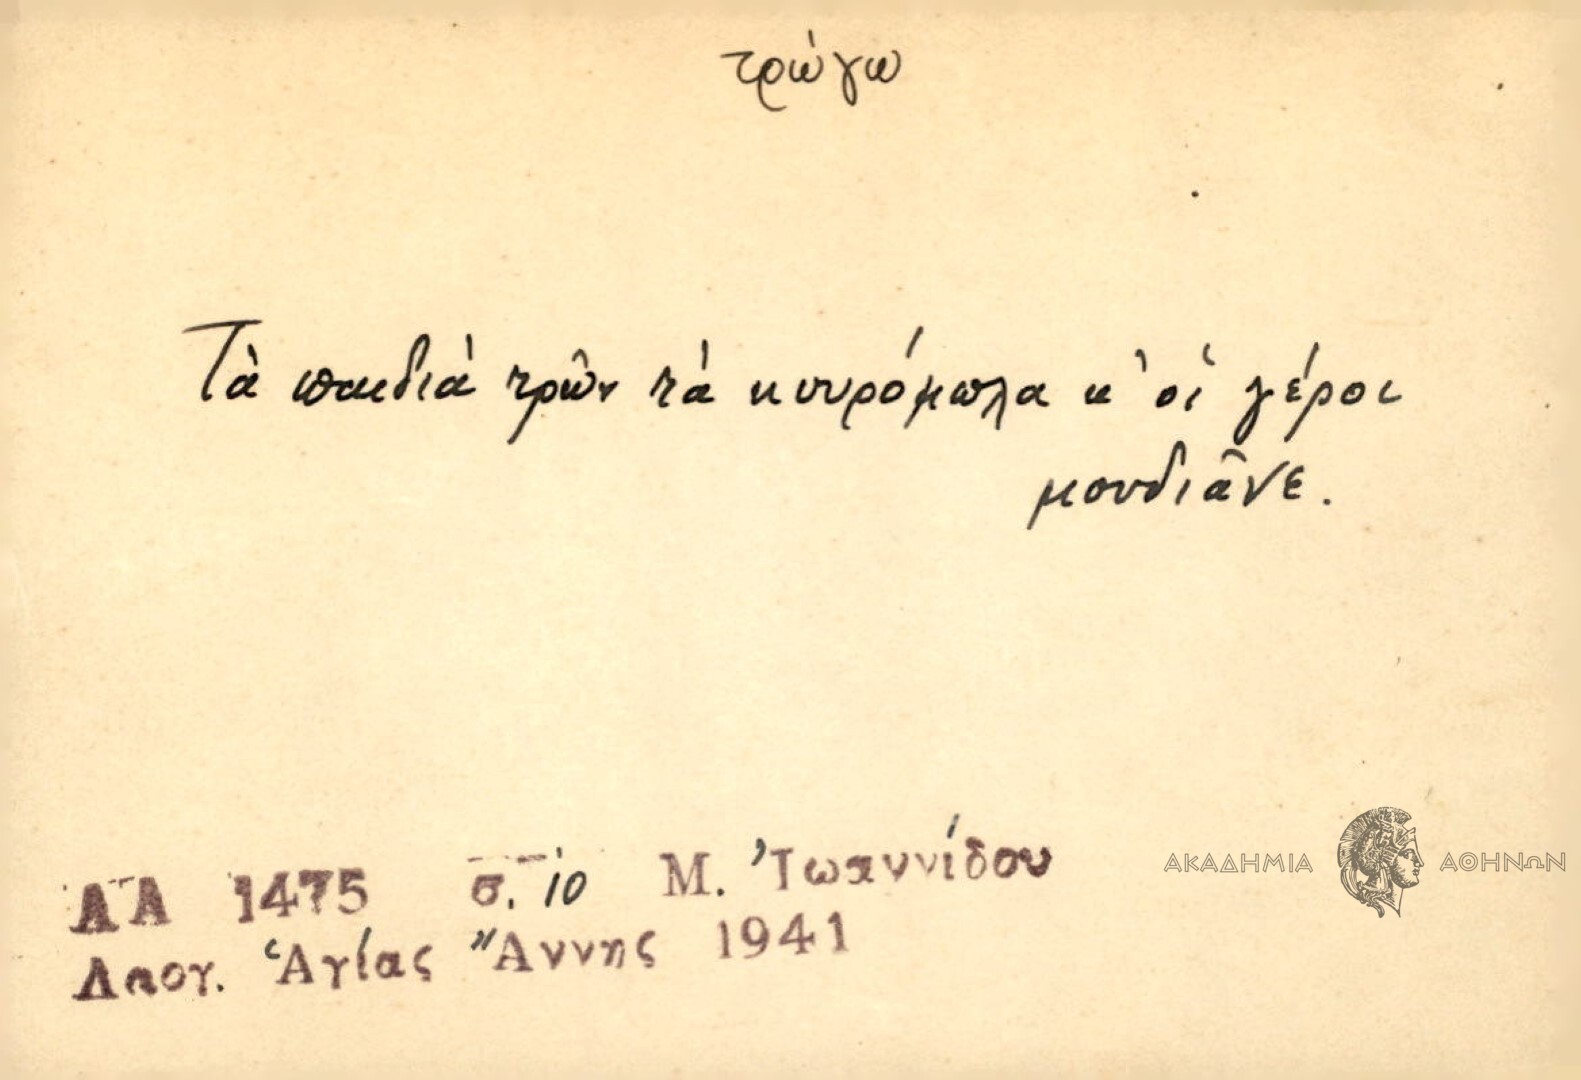 τρώγω
Τὰ παιδιὰ τρῶν τὰ κυυρόμωλα κ' οἱ γέροι
μουδιᾶνε.
ΛΑ 1475 σ. 10 Μ. Ἰωαννίδου
Λαογ. Ἁγίας Ἄννης 1941
ΑΚΑΔΗΜΙΑ ΑΘΗΝΩΝ